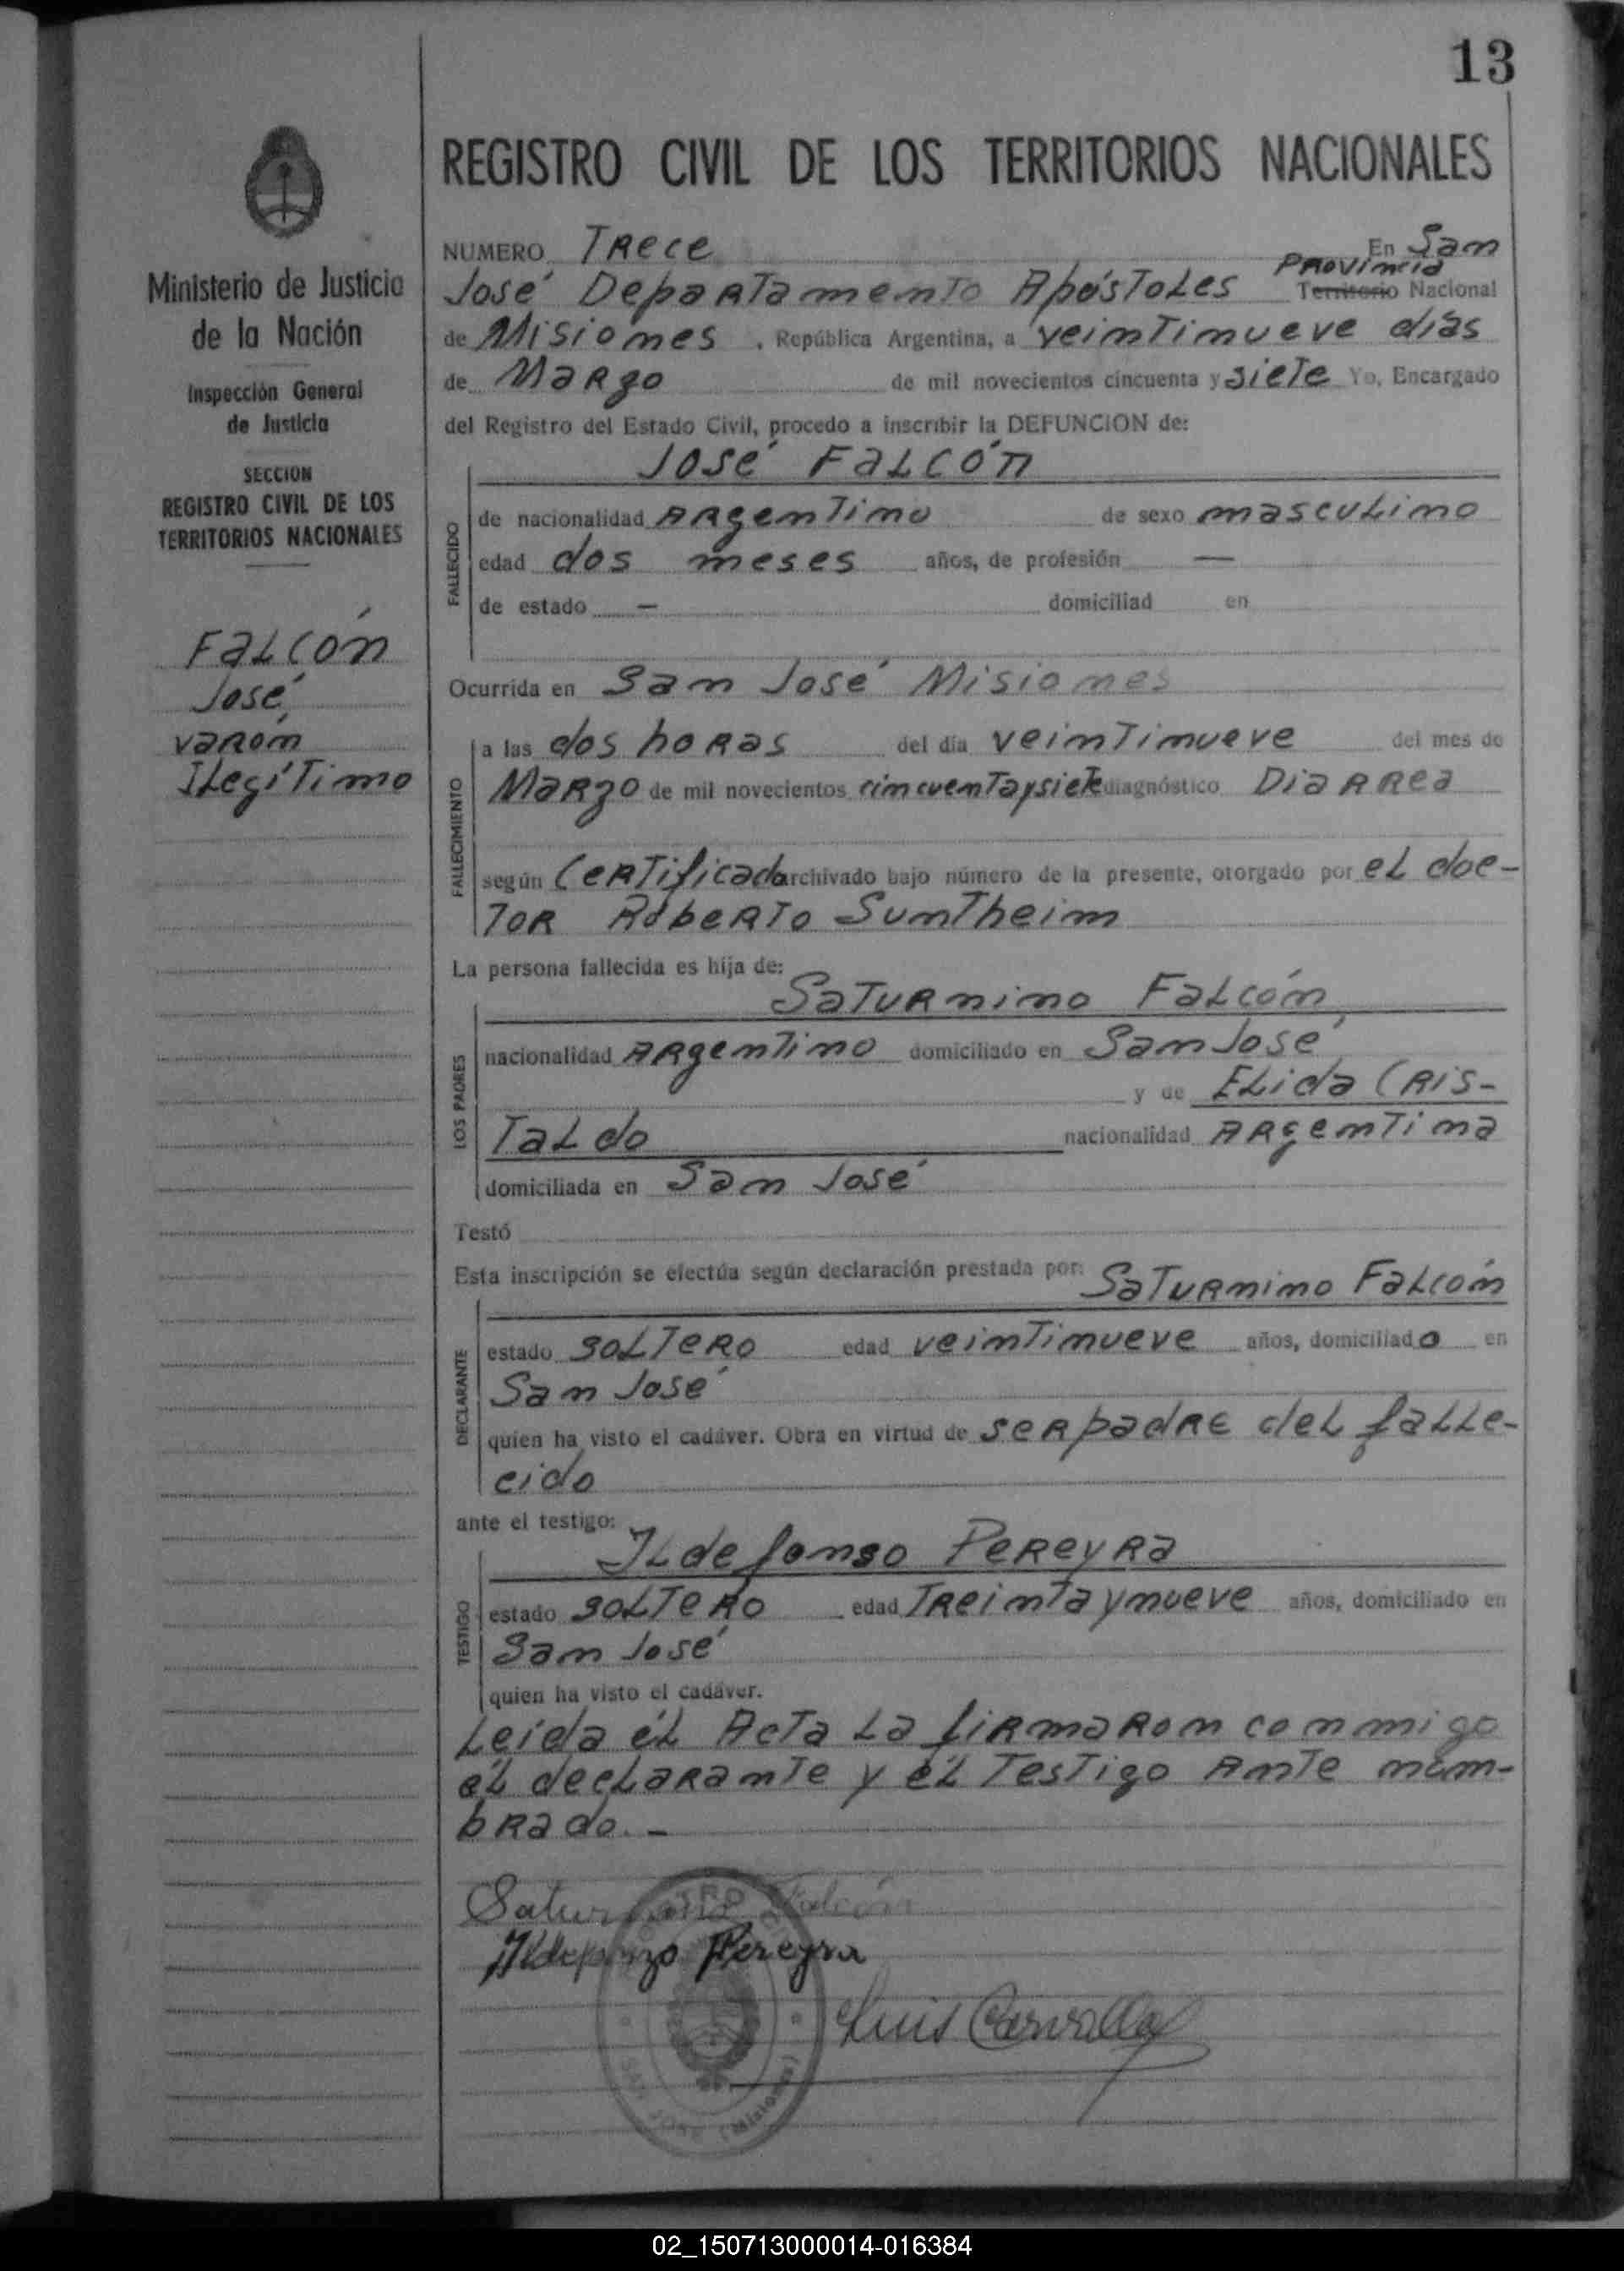 13
REGISTRO CIVIL DE LOS TERRITORIOS NACIONALES
Ministerio de Justicia
de la Nación
Inspección General
de Justicia
SECCION
REGISTRO CIVIL DE LOS
TERRITORIOS NACIONALES
Falcón
José
varón
Ilegítimo
NUMERO Trece En San
José Departamento Apóstoles Provincia Territorio Nacional
de Misiones, República Argentina, a veintinueve días
de Marzo de mil novecientos cincuenta y siete Yo, Encargado
del Registro del Estado Civil, procedo a inscribir la DEFUNCION de:
José Falcón
FALLECIDO
de nacionalidad Argentino de sexo masculino
edad dos meses años, de profesión —
de estado — domiciliad en
Ocurrida en San José Misiones
FALLECIMIENTO
a las dos horas del día veintinueve del mes de
Marzo de mil novecientos cincuenta y siete diagnóstico Diarrea
según Certificado archivado bajo número de la presente, otorgado por el doc-
tor Roberto Suntheim
La persona fallecida es hija de:
Saturnino Falcón
LOS PADRES
nacionalidad Argentino domiciliado en San José
y de Elida Cris-
taldo nacionalidad Argentina
domiciliada en San José
Testó
Esta inscripción se efectúa según declaración prestada por: Saturnino Falcón
DECLARANTE
estado soltero edad veintinueve años, domiciliado en
San José
quien ha visto el cadáver. Obra en virtud de ser padre del falle-
cido
ante el testigo:
Ildefonso Pereyra
TESTIGO
estado soltero edad treinta y nueve años, domiciliado en
San José
quien ha visto el cadáver.
Leída él Acta la firmaron conmigo
él declarante y él testigo Ante nom-
brado. —
Saturnino Falcón
Ildefonzo Pereyra
Luis Carvallo
SAN JOSE (Misiones)
02_150713000014-016384